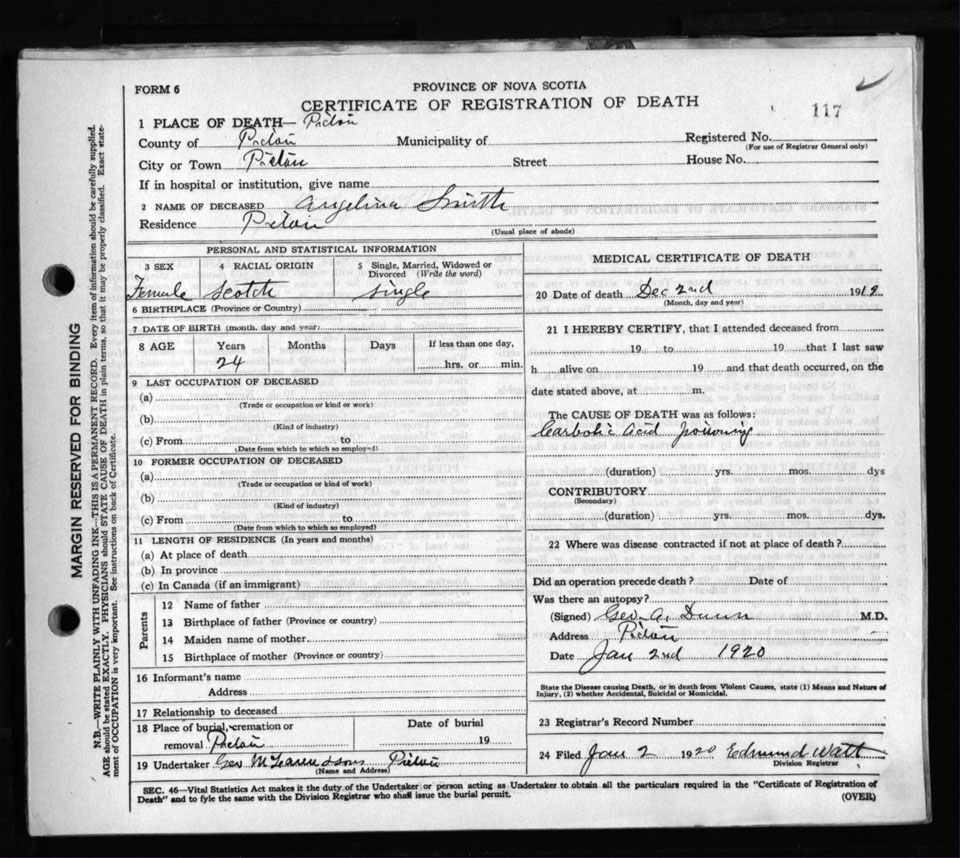 FORM 6
PROVINCE OF NOVA SCOTIA
CERTIFICATE OF REGISTRATION OF DEATH
117
1 PLACE OF DEATH— Pictou
County of Pictou Municipality of Registered No.
(For use of Registrar General only)
City or Town Pictou Street House No.
If in hospital or institution, give name
2 NAME OF DECEASED Angelina Smith
Residence Pictou
(Usual place of abode)
PERSONAL AND STATISTICAL INFORMATION
3 SEX 4 RACIAL ORIGIN 5 Single, Married, Widowed or Divorced (Write the word)
Female Scotch Single
6 BIRTHPLACE (Province or Country)
7 DATE OF BIRTH (month, day and year)
8 AGE Years Months Days If less than one day,
24 hrs. or min.
9 LAST OCCUPATION OF DECEASED
(a)
(Trade or occupation or kind or work)
(b)
(Kind of industry)
(c) From to
(Date from which to which so employed)
10 FORMER OCCUPATION OF DECEASED
(a)
(Trade or occupation or kind of work)
(b)
(Kind of industry)
(c) From to
(Date from which to which so employed)
11 LENGTH OF RESIDENCE (In years and months)
(a) At place of death
(b) In province
(c) In Canada (if an immigrant)
Parents
12 Name of father
13 Birthplace of father (Province or country)
14 Maiden name of mother
15 Birthplace of mother (Province or country)
16 Informant's name
Address
17 Relationship to deceased
18 Place of burial, cremation or Date of burial
removal Pictou 19
19 Undertaker Geo McLaren & Sons Pictou
(Name and Address)
MEDICAL CERTIFICATE OF DEATH
20 Date of death Dec 2nd 1919
(Month, day and year)
21 I HEREBY CERTIFY, that I attended deceased from
19 to 19 that I last saw
h alive on 19 and that death occurred, on the
date stated above, at m.
The CAUSE OF DEATH was as follows:
Carbolic acid poisoning
(duration) yrs. mos. dys
CONTRIBUTORY
(Secondary)
(duration) yrs. mos. dys.
22 Where was disease contracted if not at place of death?
Did an operation precede death? Date of
Was there an autopsy?
(Signed) Geo. A. Dunn M.D.
Address Pictou
Date Jan 2nd 1920
State the Disease causing Death, or in death from Violent Causes, state (1) Means and Nature of
Injury, (2) whether Accidental, Suicidal or Homicidal.
23 Registrar's Record Number
24 Filed Jan 2 1920 Edmund Watt
Division Registrar
SEC. 46—Vital Statistics Act makes it the duty of the Undertaker or person acting as Undertaker to obtain all the particulars required in the "Certificate of Registration of
Death" and to fyle the same with the Division Registrar who shall issue the burial permit.
(OVER)
MARGIN RESERVED FOR BINDING
N.B.—WRITE PLAINLY WITH UNFADING INK—THIS IS A PERMANENT RECORD. Every item of information should be carefully supplied.
AGE should be stated EXACTLY. PHYSICIANS should STATE CAUSE OF DEATH in plain terms, so that it may be properly classified. Exact state-
ment of OCCUPATION is very important. See instructions on back of Certificate.